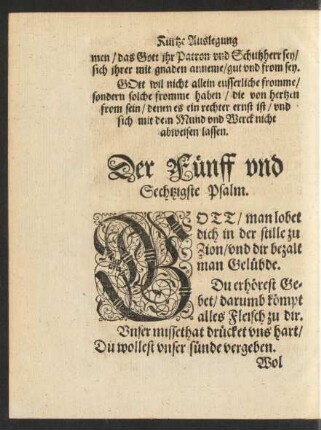 Kurtze Auslegung
men / das Gott jhr Patron vnd Schutzherr sey /
sich jhrer mit gnaden anneme / gut vnd from sey.
GOtt wil nicht allein eusserliche fromme /
sondern solche fromme haben / die von hertzen
from sein / denen es ein rechter ernst ist / vnd
sich mit dem Mund vnd Werck nicht
abweisen lassen.
Der Fünff vnd
Sechtzigste Psalm.
GOTT / man lobet
dich in der stille zu
Zion / vnd dir bezalt
man Gelübde.
Du erhörest Ge-
bet / darumb kömpt
alles Fleisch zu dir.
Vnser missethat drücket vns hart /
Du wollest vnser sünde vergeben.
Wol